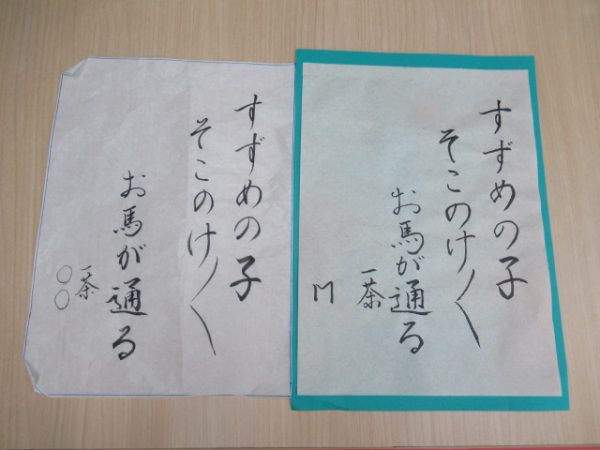 すずめの子
そこのけ〳〵
お馬が通る
一茶
すずめの子
そこのけ〳〵
お馬が通る
一茶
〇〇